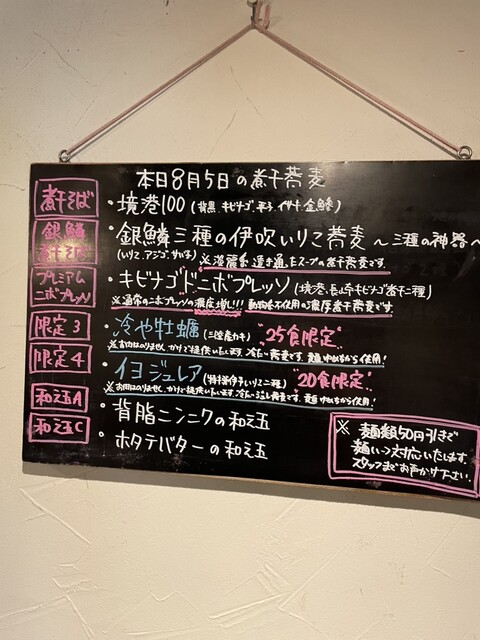 本日8月5日の煮干蕎麦
煮干そば
・境港100(背黒、キビナゴ、平子、イサキ、金鯵)
銀鱗煮干そば
・銀鱗三種の伊吹いりこ蕎麦～三種の神器～
(いりこ、アジゴ、カバ子) ※淡麗系透き通ったスープの煮干蕎麦です。
プレミアムニボプレッソ
・キビナゴドニボプレッソ(境港、長崎キビナゴ煮干二種)
※通常のニボプレッソの濃度増し!!! 動物系不使用の濃厚煮干蕎麦です。
限定3
・冷や牡蠣(三陸産カキ) "25食限定"
※お肉はのりません、かけで提供いたします。冷たい蕎麦です。麺
限定4
・イヨジュレア(特撰伊予いりこ二種) "20食限定"
※お肉はのりません、かけで提供いたします。冷たい
和え玉A
・背脂ニンニクの和え玉
和え玉C
・ホタテバターの和え玉
※麺類50円引きで
対応いたします。
スタッフまでお声かけ下さい。